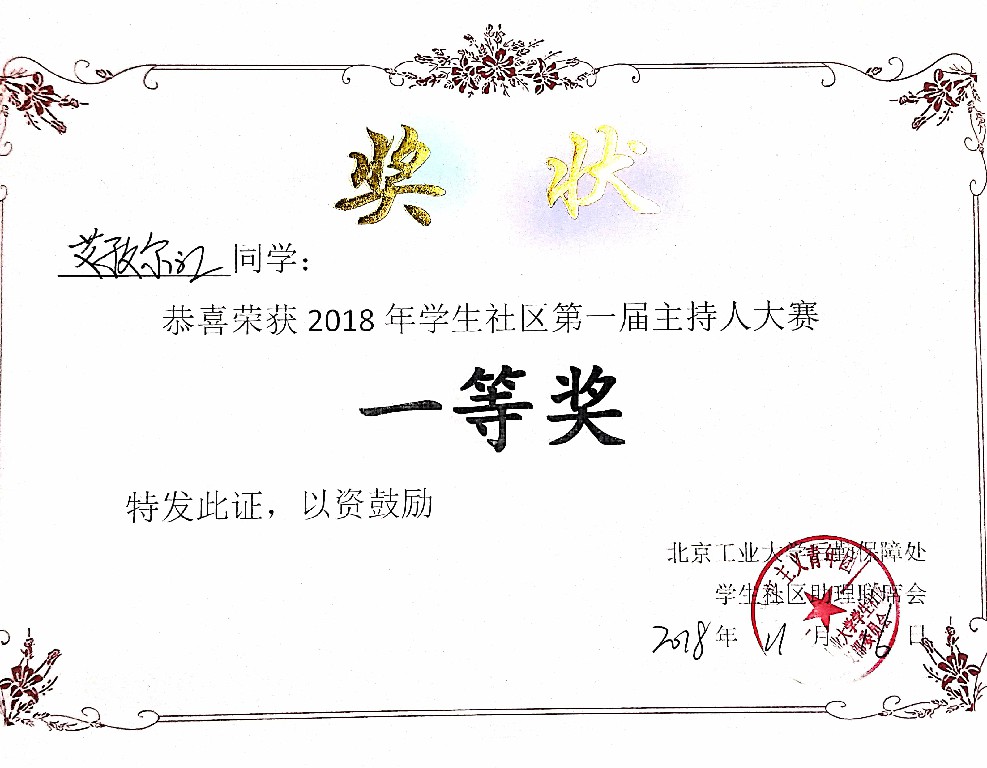 奖状
艾孜尔江同学：
恭喜荣获2018年学生社区第一届主持人大赛
一等奖
特发此证，以资鼓励
北京工业大学后勤保障处
学生社区助理联席会
2018年11月6日
主义青年团